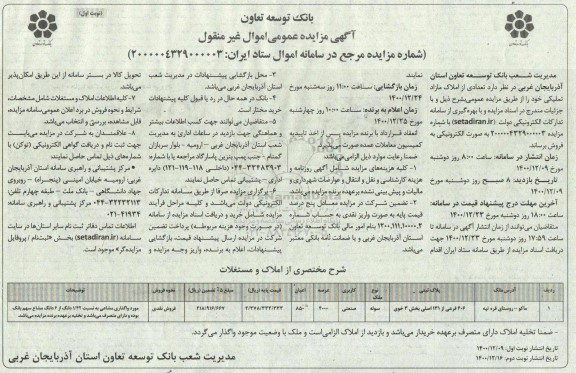 (نوبت اول)
بانک توسعه تعاون
آگهی مزایده عمومی اموال غیر منقول
(شماره مزایده مرجع در سامانه اموال ستاد ایران: ۲۰۰۰۰۰۴۳۲۹۰۰۰۰۰۳)
مدیریت شعب بانک توسعه تعاون استان
آذربایجان غربی در نظر دارد تعدادی از املاک مازاد
تملیکی خود را از طریق مزایده عمومی بشرح ذیل و با
جزئیات مندرج در اسناد مزایده و با بهره‌گیری از سامانه
تدارکات الکترونیکی دولت (setadiran.ir) با شماره
مزایده ۲۰۰۰۰۰۴۳۲۹۰۰۰۰۰۳ به صورت الکترونیکی به
فروش برساند.
زمان انتشار در سامانه: ساعت ۸:۰۰ روز دوشنبه
مورخ ۱۴۰۰/۱۲/۰۹
تاریخ بازدید: ۸ صبح روز دوشنبه مورخ
۱۴۰۰/۱۲/۰۹
آخرین مهلت درج پیشنهاد قیمت در سامانه:
ساعت ۱۸:۰۰ روز دوشنبه مورخ ۱۴۰۰/۱۲/۲۳
متقاضیان می‌توانند از زمان انتشار آگهی در سامانه تا
ساعت ۱۷:۵۹ روز دوشنبه مورخ ۱۴۰۰/۱۲/۲۳ جهت
دریافت اسناد مزایده از طریق سامانه ستاد ایران اقدام
نمایند
زمان بازگشایی: ساعت ۱۱:۰۰ روز سه‌شنبه مورخ
۱۴۰۰/۱۲/۲۴
زمان اعلام به برنده: ساعت ۱۰:۰۰ روز چهارشنبه
مورخ ۱۴۰۰/۱۲/۲۵
انعقاد قرارداد با برنده مزایده پس از اخذ تاییدیه
کمیسیون معاملات عمده صورت می‌پذیرد
ضمنا رعایت موارد ذیل الزامی می‌باشد:
۱- کلیه هزینه‌های مزایده شامل آگهی روزنامه و
هزینه کارشناسی و نقل و انتقال و عوارضات شهرداری و
مالیات و پیش بینی نشده برعهده برنده مزایده می‌باشد.
۲- تضمین شرکت در مزایده معادل پنج درصد
قیمت پایه به صورت واریز نقدی به حساب شماره
بنام امور مالی بانک توسعه تعاون
استان آذربایجان غربی و یا ضمانت نامه بانکی معتبر
می‌باشد.
۳- محل بازگشایی پیشنهادات در مدیریت شعب
استان آذربایجان غربی می‌باشد.
۴- بانک در همه حال در رد یا قبول کلیه پیشنهادات
خرید مختار است
۵- متقاضیان می‌توانند جهت کسب اطلاعات بیشتر
و هماهنگی جهت بازدید در ساعات اداری به مدیریت
شعب استان آذربایجان غربی - ارومیه - بلوار سربازان
گمنام - جنب پمپ بنزین پاسارگاد مراجعه یا با شماره
اداری - پشتیبانی تماس حاصل نمایند.
۶- برگزاری مزایده صرفا از طریق سامانه تدارکات
الکترونیکی دولت می‌باشد و کلیه مراحل فرآیند
مزایده شامل خرید و دریافت اسناد مزایده از سامانه
(در صورت وجود هزینه مربوطه) پرداخت تضمین
شرکت در مزایده ارسال پیشنهاد قیمت، بازگشایی
پیشنهادات، اعلام به برنده، واریز وجه مزایده و
تحویل کالا در بستر سامانه از این طریق امکان‌پذیر
می‌باشد.
۷- کلیه اطلاعات املاک و مستغلات شامل مشخصات،
شرایط و نحوه فروش در برد اعلان عمومی سامانه مزایده،
قابل مشاهده، بررسی و انتخاب می‌باشد.
۸- علاقمندان به شرکت در مزایده می‌بایست
جهت ثبت نام و دریافت گواهی الکترونیکی (توکن) با
شماره‌های ذیل تماس حاصل نمایند:
* مرکز پشتیبانی و راهبری سامانه استان آذربایجان
جهاد دانشگاهی - بانک ملت - طبقه چهارم تلفن:
اطلاعات تماس دفاتر ثبت نام سایر استان‌ها در سایت
سامانه (setadiran.ir) بخش «ثبت‌نام / پروفایل
مزایده‌گر» موجود است
شرح مختصری از املاک و مستغلات
ردیف | آدرس ملک | پلاک ثبتی | نوع ملک | کاربری | عرصه | اعیان | قیمت پایه (ریال) | مبلغ ۵٪ تضمین (ریال) | نحوه فروش | توضیحات
۱ | ماکو - روستای قره تپه | ۲۰۶ فرعی از ۱۴۱ اصلی بخش ۳ خوی | سوله | صنعتی | ۴۰۰۰ | ۸۵۰ | ۴/۳۷۸/۳۳۳/۳۳۳ | ۲۱۸/۹۱۶/۶۶۷ | فروش نقدی
- ضمنا تخلیه املاک دارای متصرف برعهده خریدار می‌باشد و بازدید از املاک الزامی است و ملک با وضعیت موجود واگذار می‌گردد.
تاریخ انتشار نوبت اول: ۱۴۰۰/۱۲/۰۹
تاریخ انتشار نوبت دوم: ۱۴۰۰/۱۲/۱۶
مدیریت شعب بانک توسعه تعاون استان آذربایجان غربی